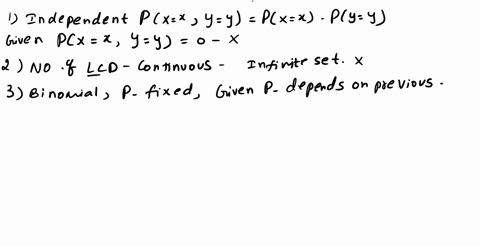 1) Independent P(x=x, y=y) = P(x=x) . P(y=y)
Given P(x=x, y=y) = 0 - x
2) No of LCD - Continuous - Infinite set. x
3) Binomial, P- fixed, Given P- depends on previous.